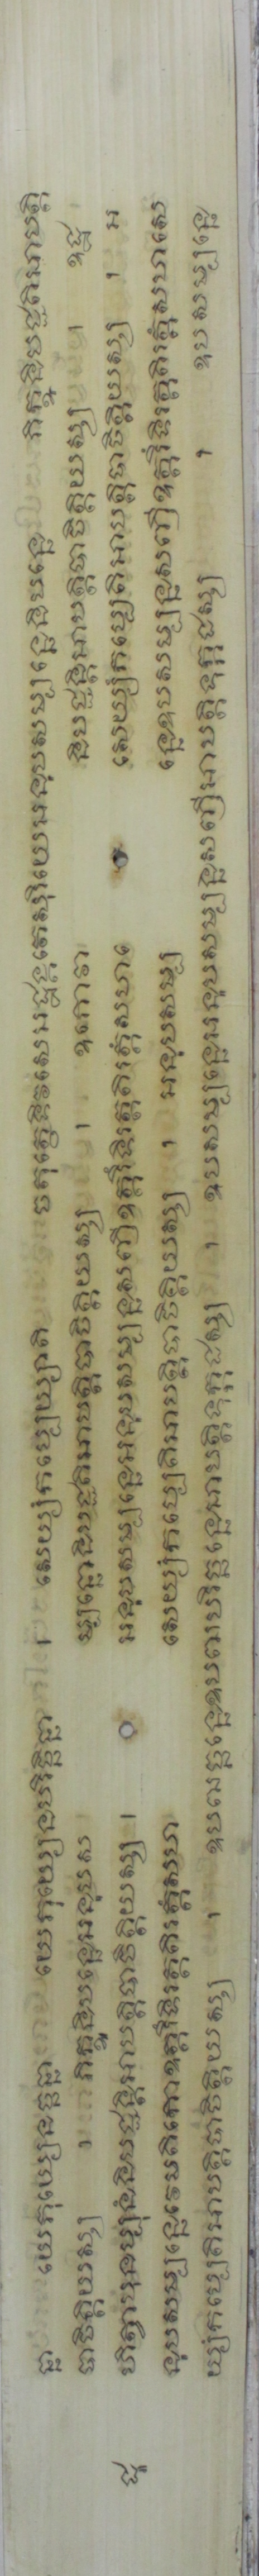 ឆ្នា យេភុយ្យេនច្ឆន្នា យេភុយ្យេនបរិច្ឆិន្នា ។ សេយ្យំកប្បេយ្យាតិ ចតុត្ថេទិវសេអដ្ឋង្គតេសុរិយេអនុបសម្បន្នេនិបន្នេ ភិក្ខុនិបជ្ជតិអាបត្តិ
បាចិត្តិយស្ស ។ ភិក្ខុនិបន្នេអនុបស ម្បន្នោនិបជ្ជតិអាបត្តិបាចិត្តិយស្ស ។ ឧភោវា និបជ្ជន្តិអាបត្តិបាចិត្តិយស្ស ។ ឧដ្ឋ
ហិត្វាបុនប្បុនំនិបជ្ជន្តិអាបត្តិបាចិត្តិយស្ស ។ អនុបសម្បន្នេអនុបសម្បន្នសញ្ញីឧត្តរិំទិរត្តតិរត្តំសហ សេយ្យំកប្បេតិអាបត្តិបាចិត្តិយស្ស ។ អ
នុបសម្បន្នេវេមតិកោឧត្តរិំទិរត្តតិរត្តំសហ សេយ្យំកប្បេតិអាបត្តិបាចិត្តិយស្ស ។ អនុបសម្ប ន្នេឧបសម្បន្នសញ្ញីឧត្តរិំទិរត្តតិរត្តំសហសេ
យ្យំកប្បេតិអាបត្តិបាចិត្តិយស្ស ។ ឧបឍច្ឆន្នេឧបឍបរិច្ឆន្នេអាបត្តិទុក្កដស្ស ។ ឧបសម្បន្នេអនុបសម្បន្នសញ្ញីអាបត្តិទុក្កដស្ស ។ ឧបសម្បន្នេ